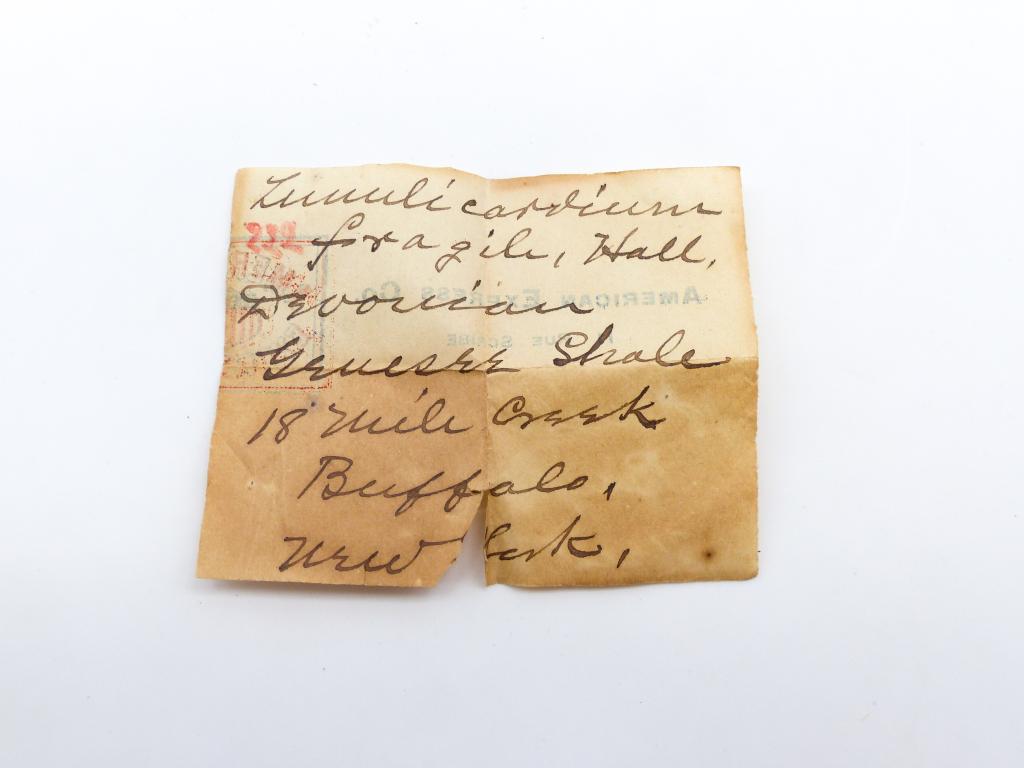 Lunulicardium
fragile, Hall,
Devonian
Genesee Shale
18 Mile Creek
Buffalo,
New York,
AMERICAN EXPRESS CO.
RUE SCRIBE